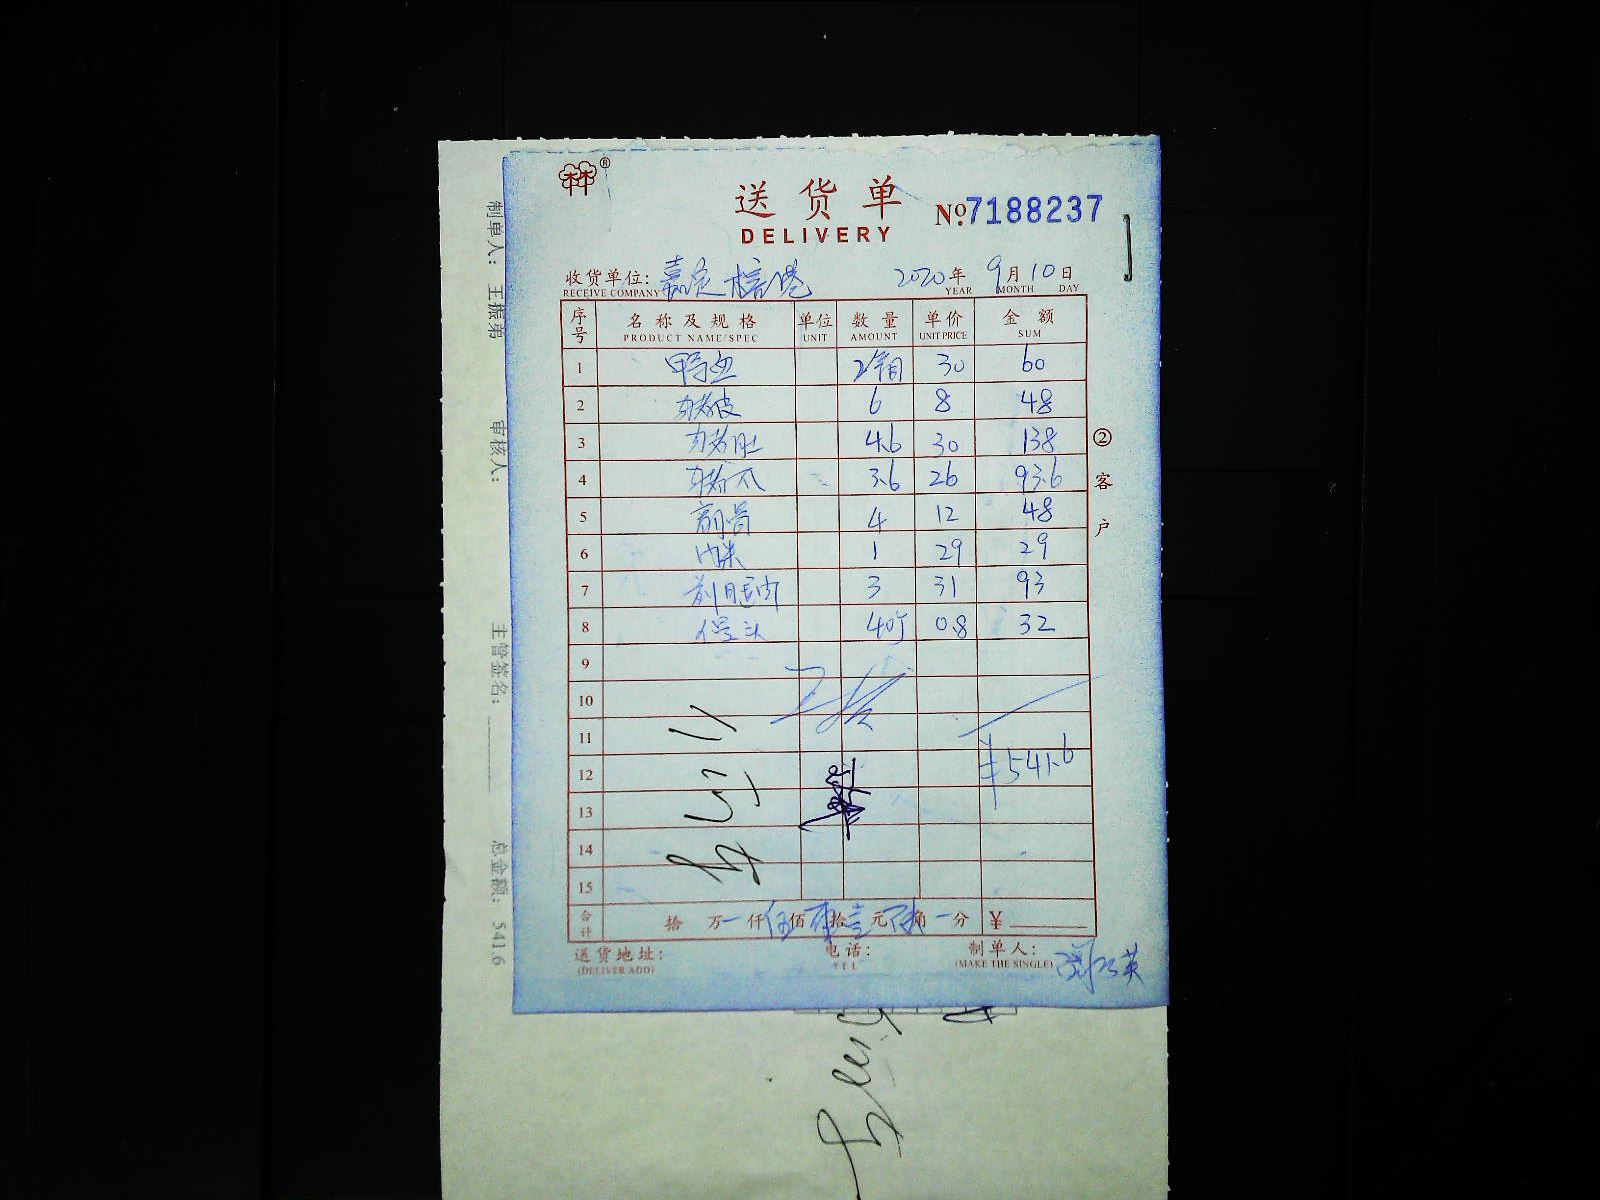 林®
送货单
DELIVERY
No.7188237
收货单位: 嘉定 2020年 9月10日
RECEIVE COMPANY YEAR MONTH DAY
序号 名称及规格 单位 数量 单价 金额
PRODUCT NAME/SPEC UNIT AMOUNT UNIT PRICE SUM
1 鸭血 2箱 30 60
2 猪皮 6 8 48
3 猪肚 4.6 30 138
4 猪爪 3.6 26 93.6
5 筒骨 4 12 48
6 肉末 1 29 29
7 前腿肉 3 31 93
8 馒头 40个 0.8 32
9
10
11
12 ¥541.6
13
14
15
合计 拾 万 一 仟 伍 佰 肆 拾 壹 元 陆 角 一 分 ¥
送货地址: 电话: 制单人:
(DELIVER ADD) TEL (MAKE THE SINGLE)
② 客户
制单人: 王振弟 审核人: 主管签名: 总金额: 541.6